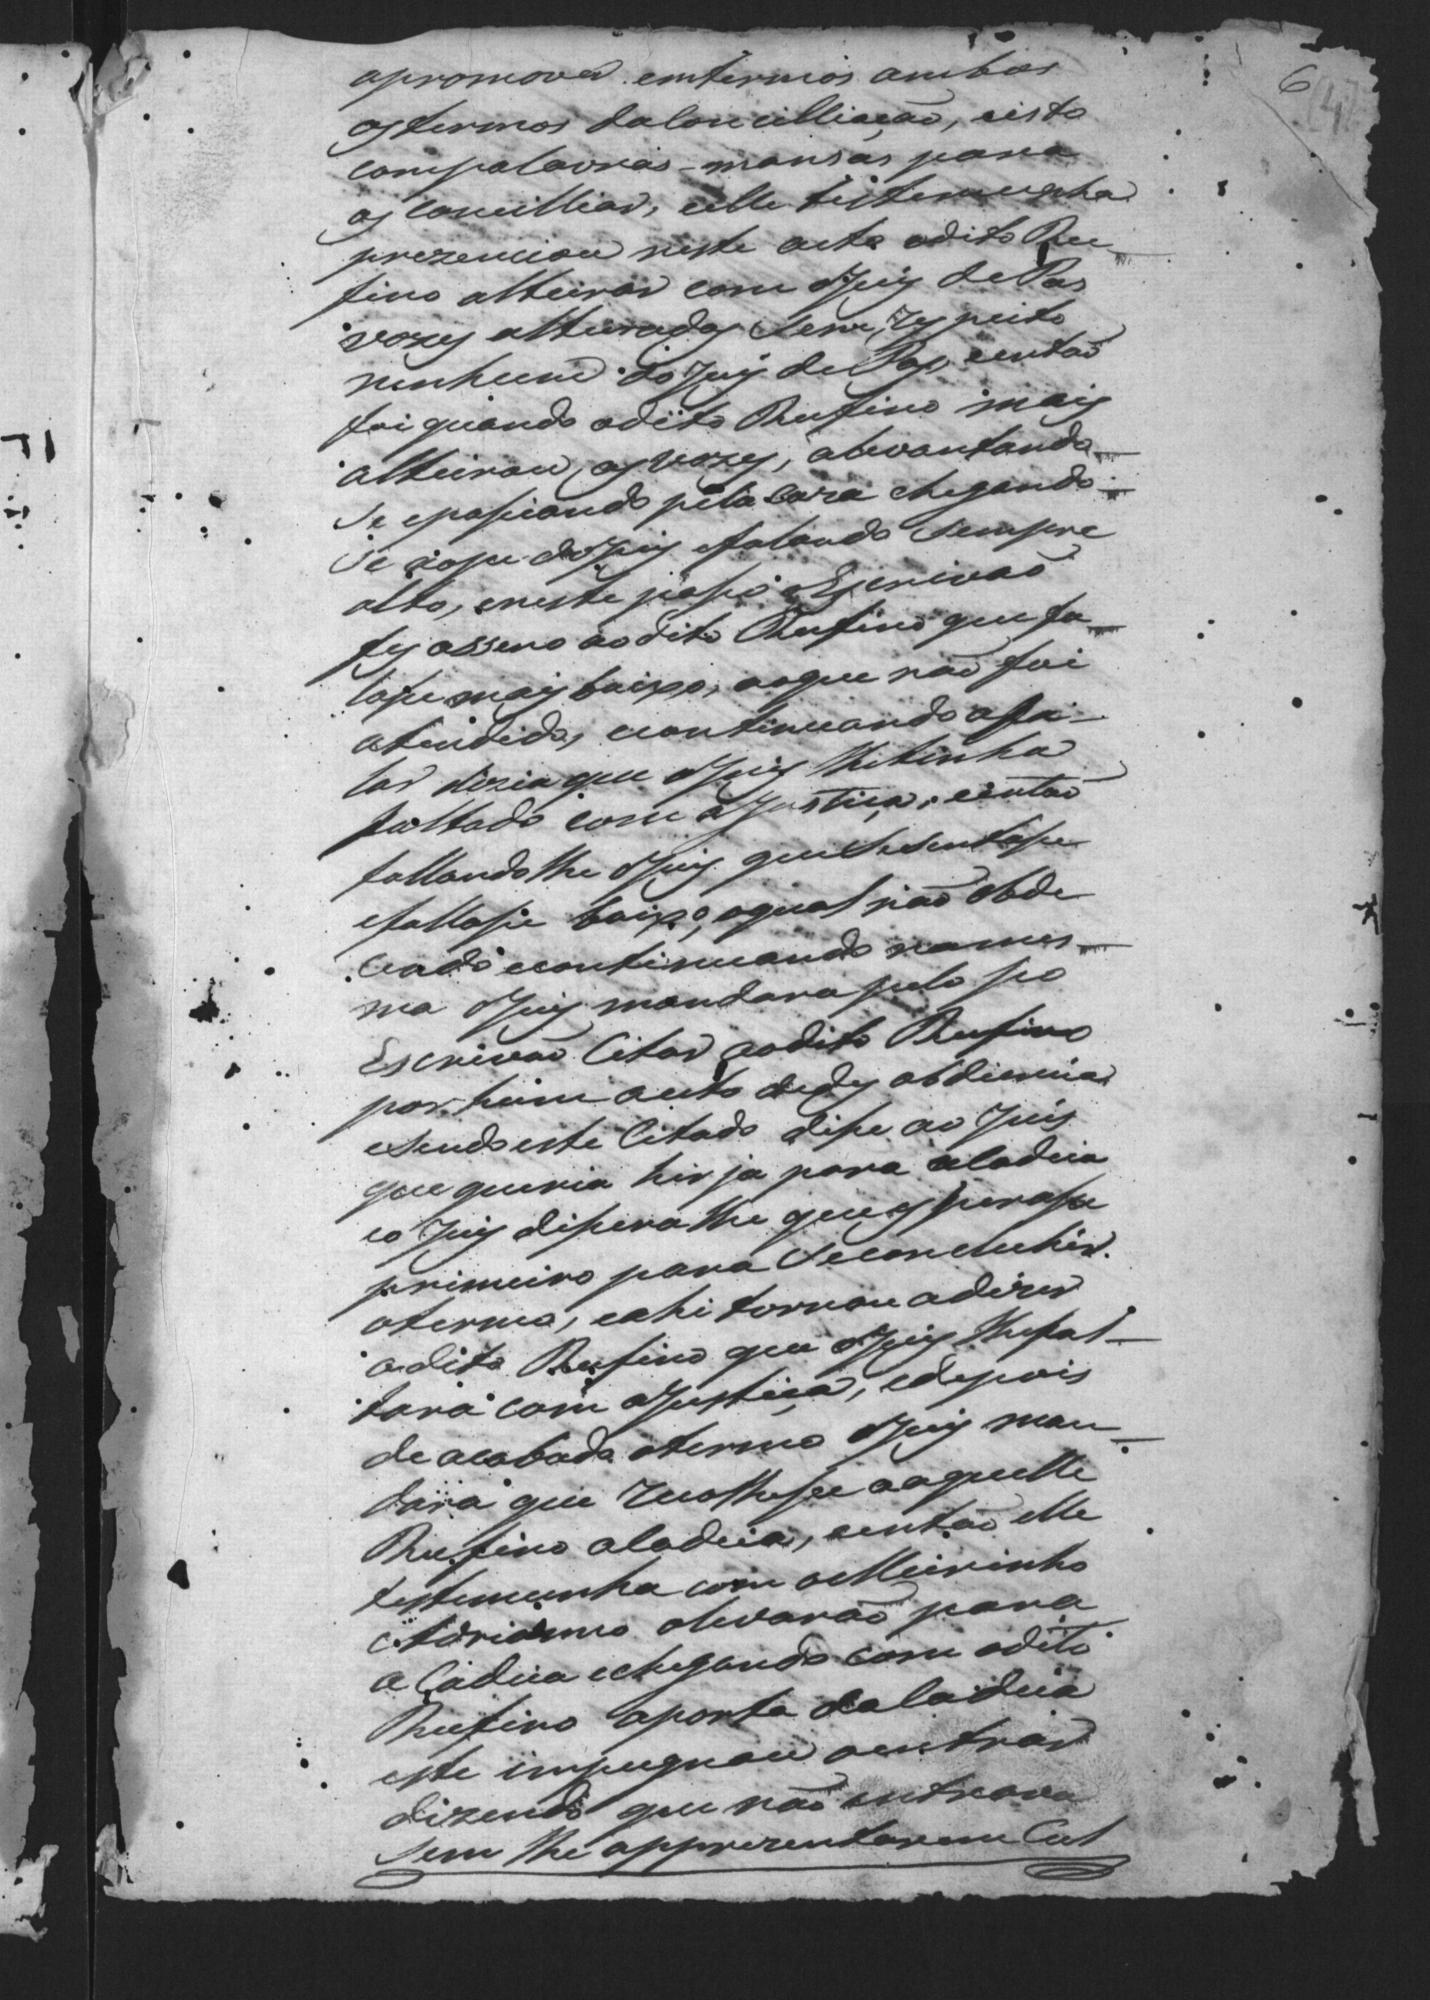 6
apromover emtermos ambos
os termos da Concilliação, eisto
compalavras mansas para
os Concilliar, e elle testemunha
prezenciou neste acto odito Ru-
fino alteirar com o Juis de Pas
vozes alteradas sem respeito
nenhum do Juis de Pas, e então
foi quando odito Rufino mais
alteirou as vozes, alevantando-
se epasiando pela Caza chegando-
se aope do Juis efalando sempre
alto, eneste paso o Escrivaõ
fes asseno ao dito Rufino que fa-
lase mais baixo, aoque não foi
atendido, econtinuando afa-
lar dizia que o Juis lhetinha
faltado com a Justiça, então
fallandolhe o Juis que se sentase
efallase baixo, oqual não obde
ceado econtinuando names-
ma o Juis mandara pelo
Escrivão Citar aodito Rufino
por hum auto de des obdiencia
esendo este Citado dise ao Juis
que queria hir ja para aCadeia
eo Juis disera lhe que esperase
primeiro para se concluhir
otermo, eahi tornou adizer
odito Rufino que o Juis lhefal-
tara com aJustiça, edepois
de acabado otermo o Juis man-
dara que recolhese aaquelle
Rufino aCadeia, então elle
testemunha com o Meirinho
olevarão para
a Cadeia echegando com odito
Rufino aporta daCadeia
este impugnou aentrar
dizendo que não entrava
sem lhe apprezentarem Cul